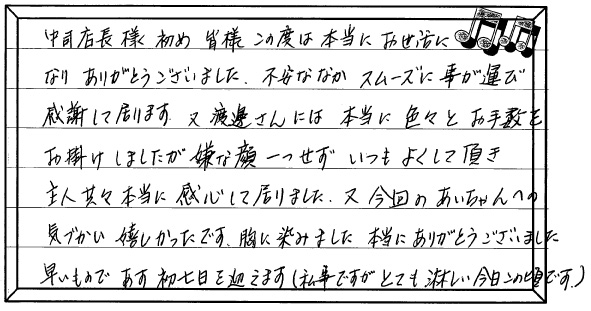 中司店長様 初め 皆様 この度は本当に お世話に
なり ありがとうございました、不安ななか スムーズに事が運び
感謝して居ります 又 渡邊さんには 本当に 色々と お手数を
お掛けしましたが 嫌な顔一つせず いつも よくして頂き
主人共々 本当に 感心して居りました、又 今回の あいちゃんへの
気づかい 嬉しかったです、胸に染みました 本当に ありがとうございました
早いもので あす 初七日を迎えます(私事ですが とても 淋しい今日この頃です。)